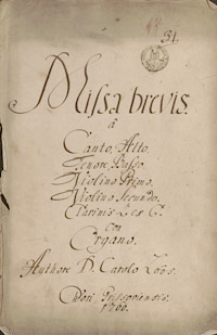 31.
Missa brevis.
â
Canto, Alto.
Tenore, Basso.
Violino Primo.
Violino Secundo.
Clarinis 2. ex C.
con
Organo.
Authore D. Carolo